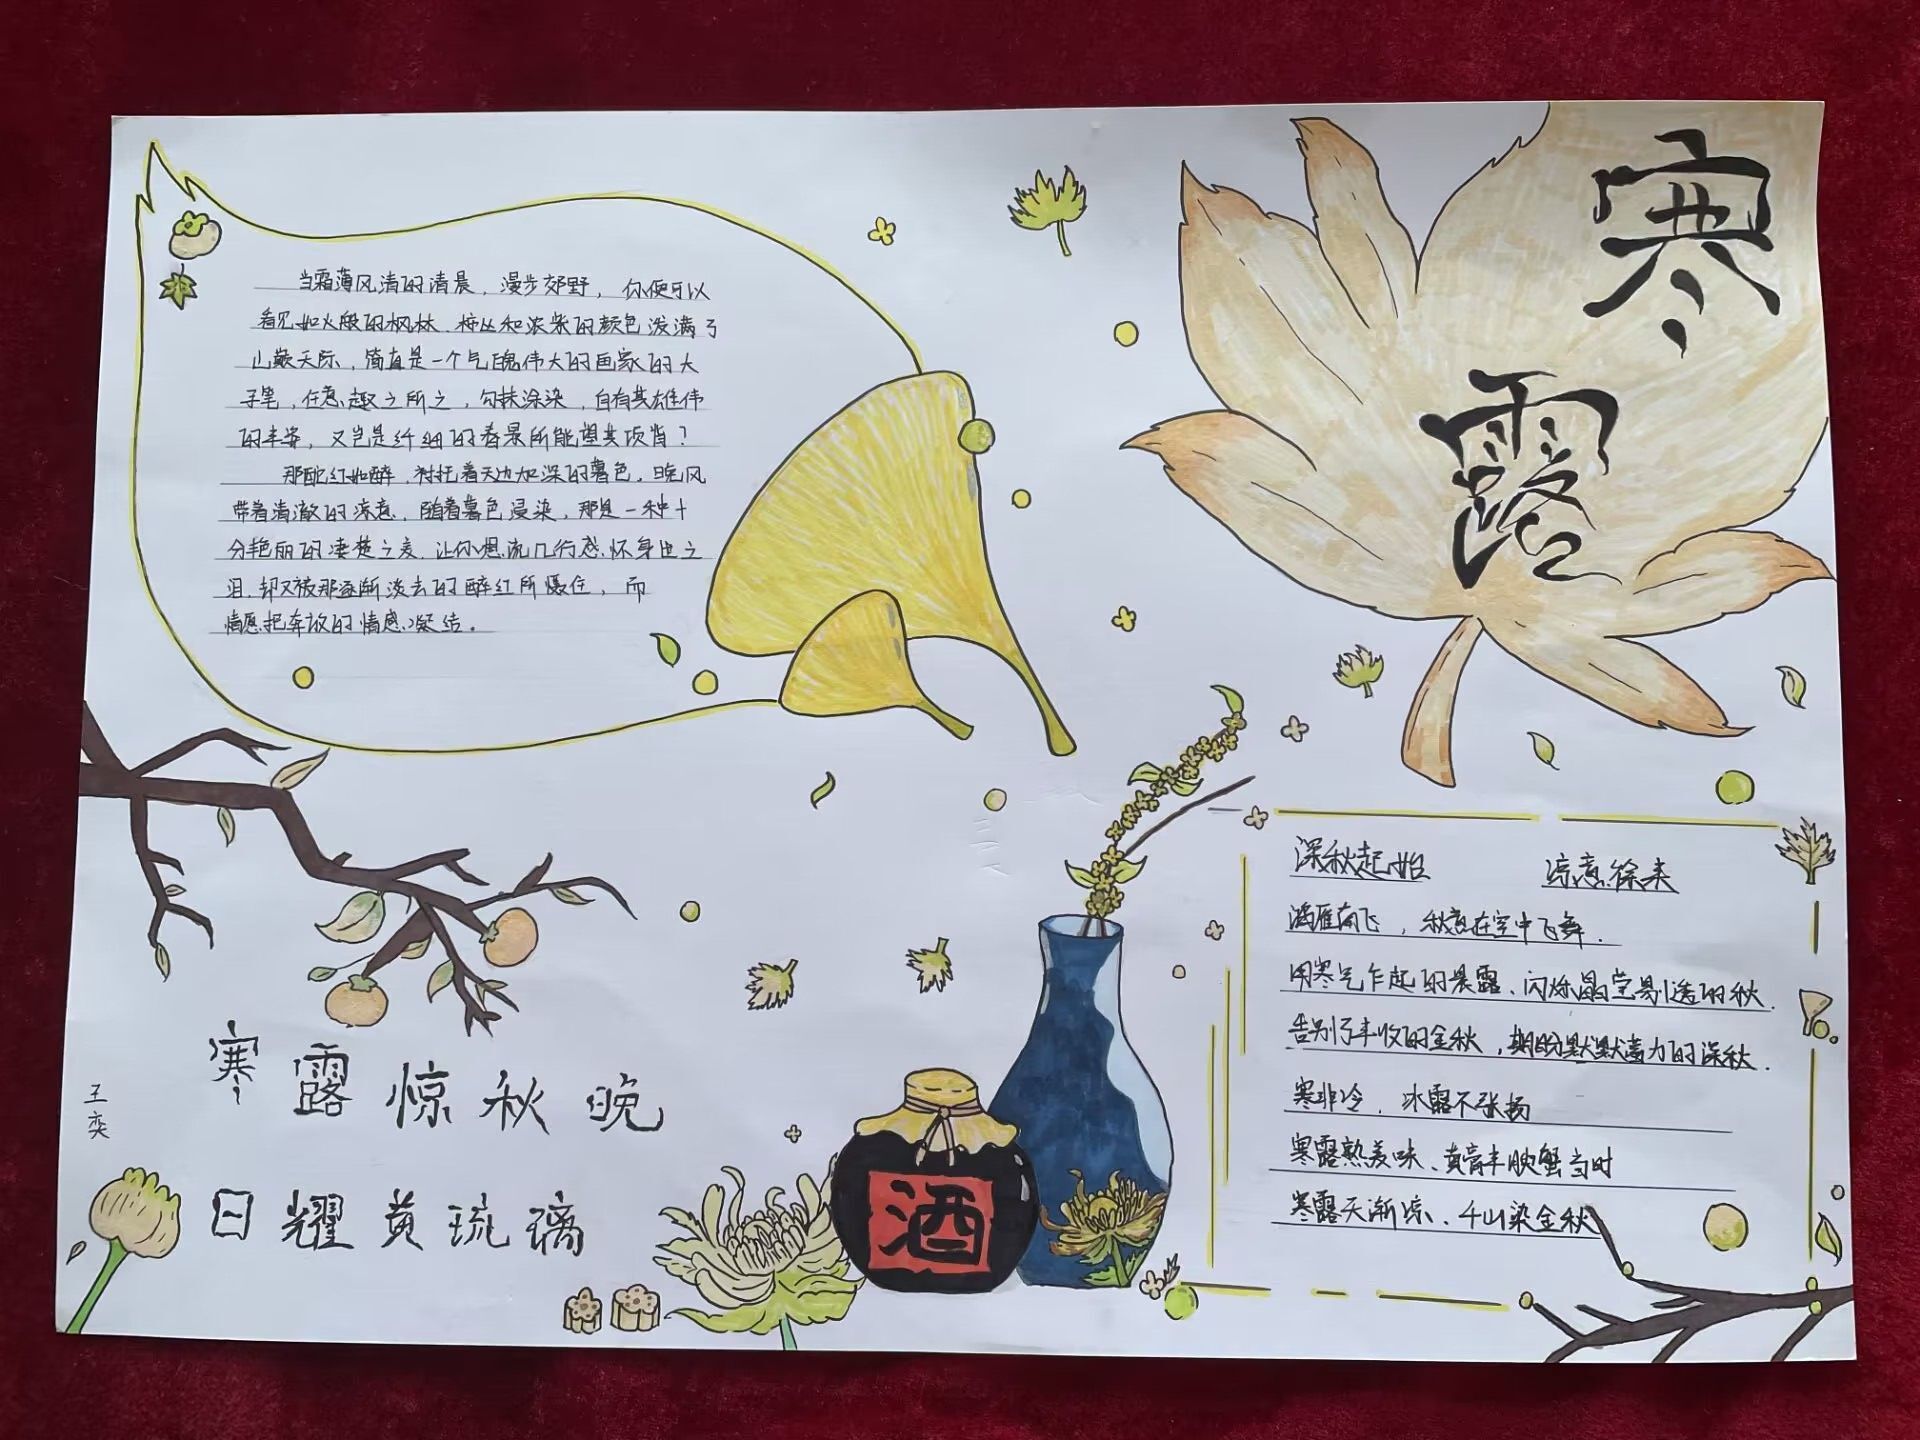 寒
露
当霜薄风清的清晨，漫步郊野，你便可以
看见如火般的枫林，桉丛和浓紫的颜色泼满了
山巅天际，简直是一个气魄伟大的画家的大
手笔，任意趣之所之，勾抹涂染，自有其雄伟
的丰姿，又岂是纤细的春景所能望其项背？
那酡红如醉，衬托着天边加深的暮色，晚风
带着清澈的凉意，随着暮色浸染，那是一种十
分艳丽的凄楚之美，让你想流几行感怀身世之
泪，却又被那逐渐淡去的醉红所慑住，而
情愿把奔放的情感凝结。
深秋起始 凉意徐来
鸿雁南飞，秋意在空中飞舞.
用寒气乍起的晨露、闪烁晶莹剔透的秋.
告别了丰收的金秋，期盼默默蓄力的深秋.
寒非冷，冰露不张扬
寒露熟美味、黄膏丰腴蟹当时
寒露天渐凉、千山染金秋
寒露惊秋晚
日耀黄琉璃
王奕
酒